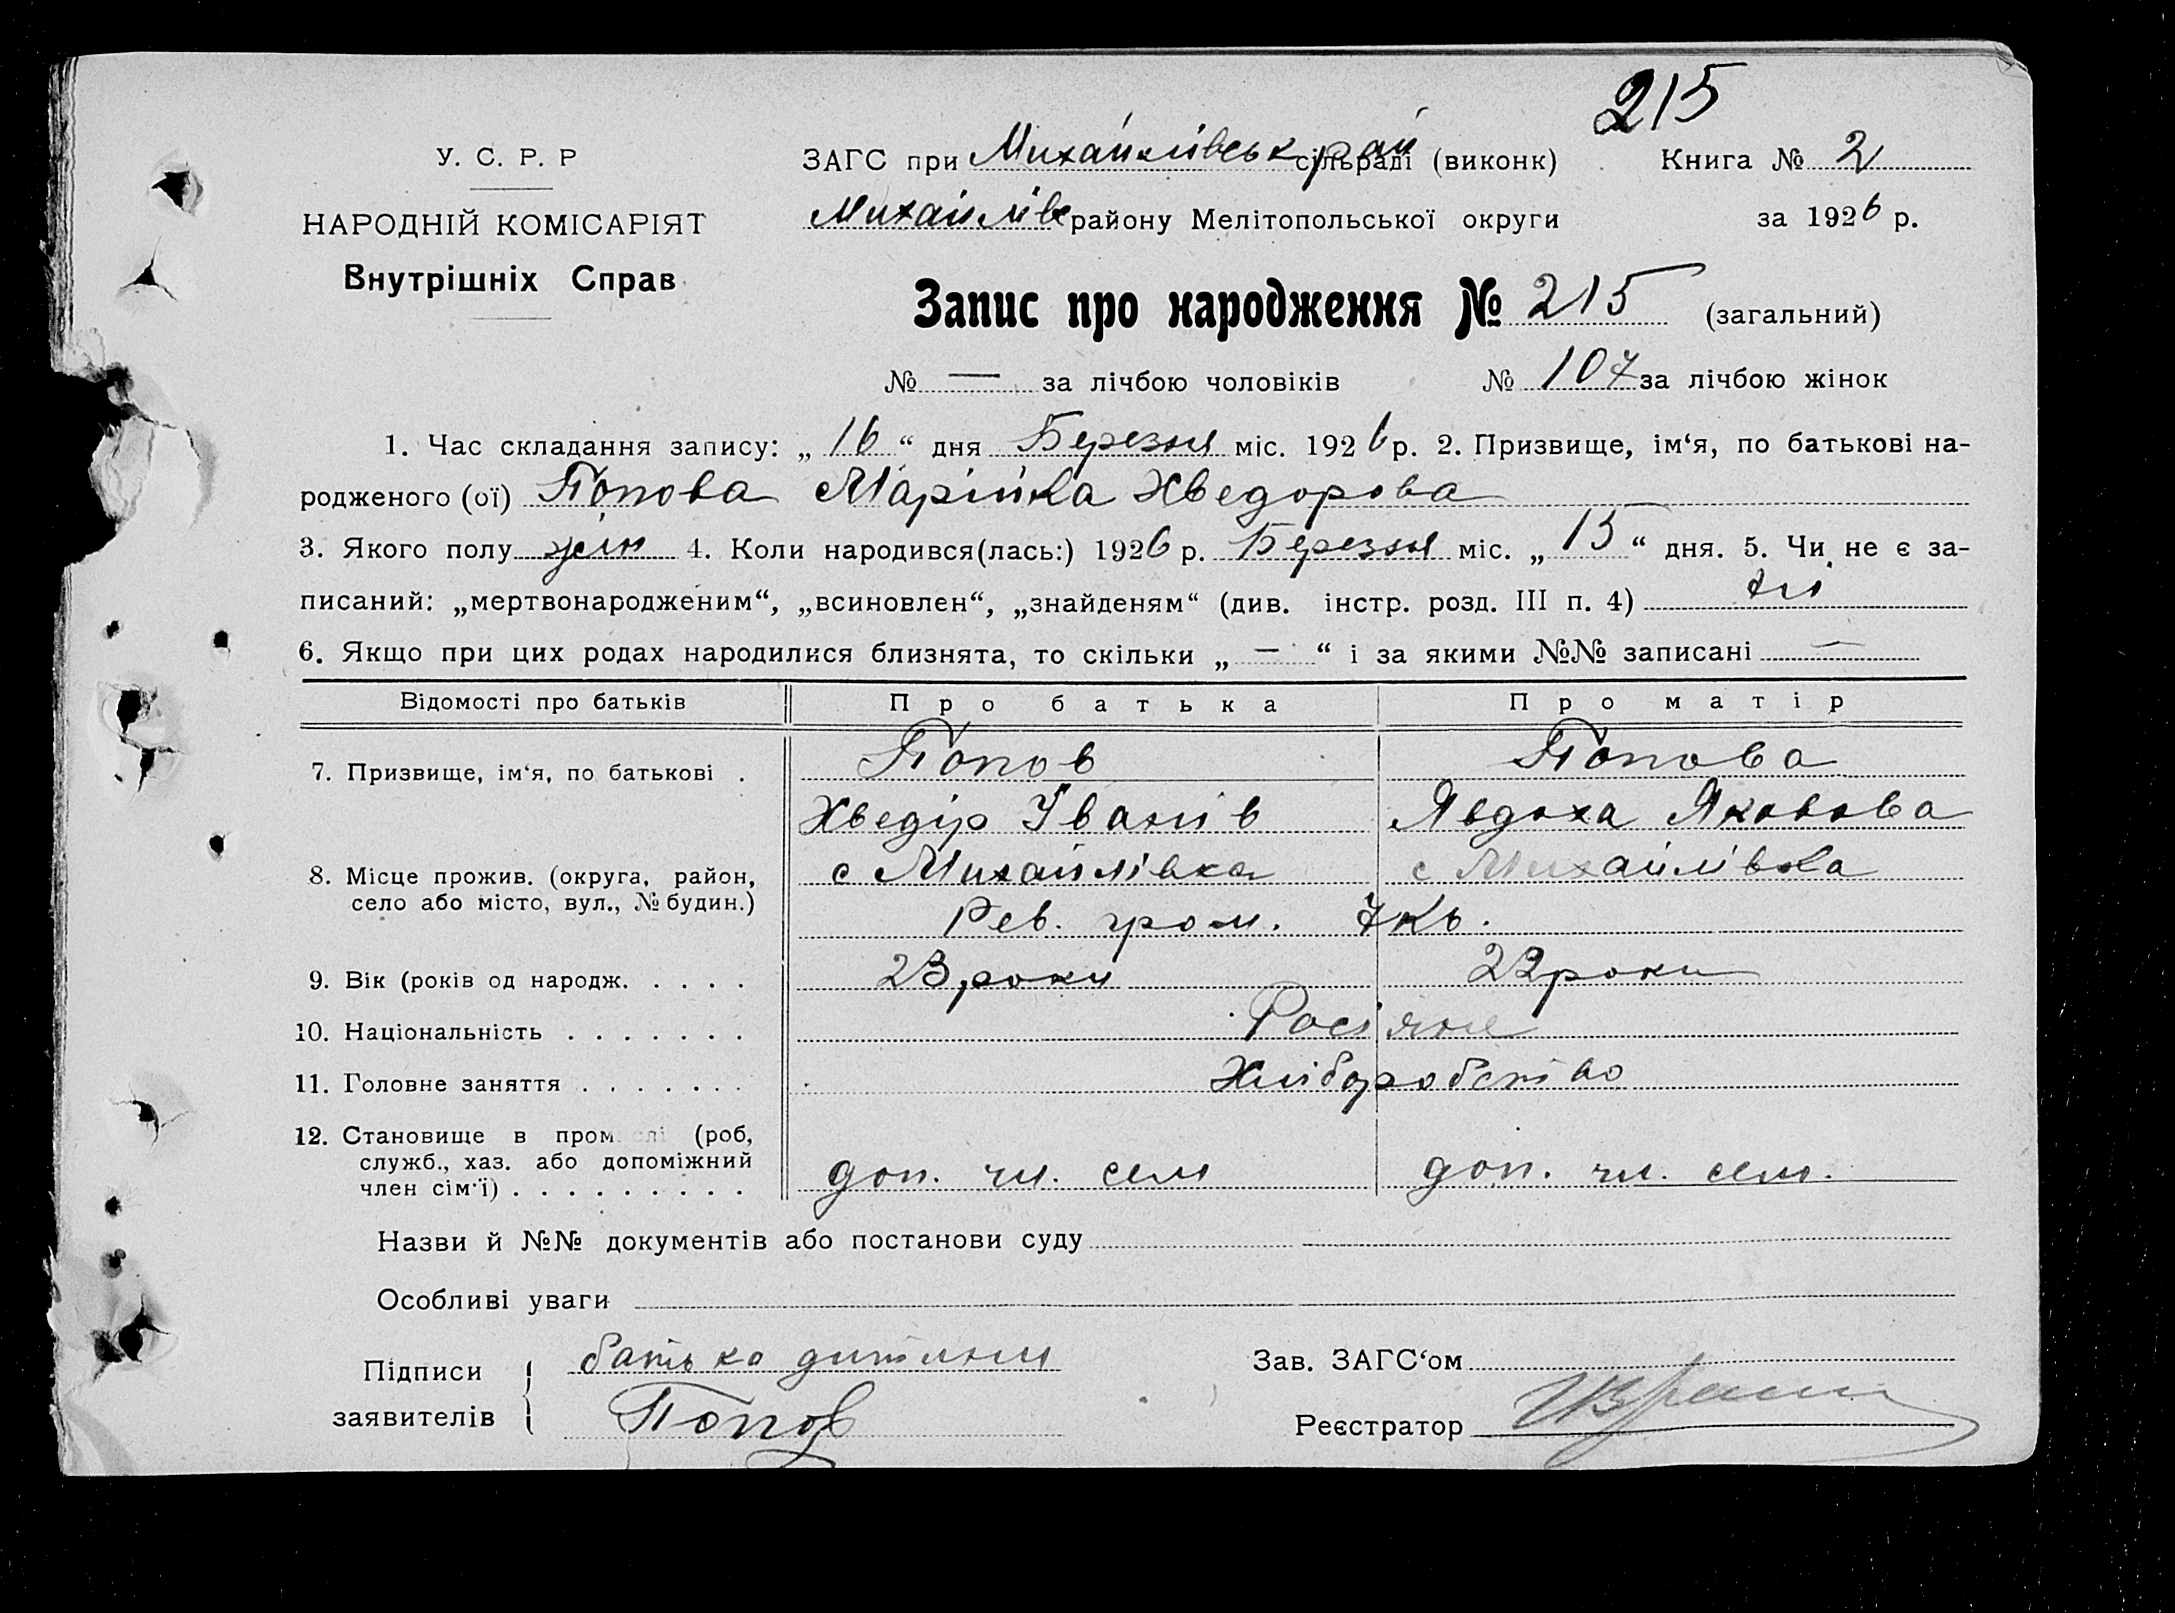 215
У. С. Р. Р
ЗАГС при Михайлівськ рай сільраді (виконк) Книга № 2
НАРОДНІЙ КОМІСАРІЯТ
Михайлівс району Мелітопольської округи за 1926 р.
Внутрішніх Справ
Запис про народження № 215 (загальний)
№ — за лічбою чоловіків № 107 за лічбою жінок
1. Час складання запису: „ 16 “ дня Березня міс. 1926 р. 2. Призвище, ім‘я, по батькові на-
родженого (ої) Попова Марійка Хведорова
3. Якого полу жін 4. Коли народився(лась:) 1926 р. Березня міс. „ 15 “ дня. 5. Чи не є за-
писаний: „мертвонародженим“, „всиновлен“, „знайденям“ (див. інстр. розд. III п. 4) ні
6. Якщо при цих родах народилися близнята, то скільки „ — “ і за якими №№ записані —
Відомості про батьків Про батька Про матір
7. Призвище, ім‘я, по батькові . Попов Попова
Хведір Іванів Явдоха Яковова
8. Місце прожив. (округа, район, с Михайлівка с Михайлівка
село або місто, вул., № будин.) Рев. гром. 7 Кв.
9. Вік (років од народж. . . . . 23 роки 22 роки
10. Національність . . . . . . . Росіяне
11. Головне заняття . . . . . . . Хліборобство
12. Становище в промислі (роб,
служб., хаз. або допоміжний
член сім‘ї) . . . . . . . . . доп. чл. сем доп. чл. сем.
Назви й №№ документів або постанови суду
Особливі уваги
Підписи батько дитини Зав. ЗАГС‘ом
заявителів Попов Реєстратор